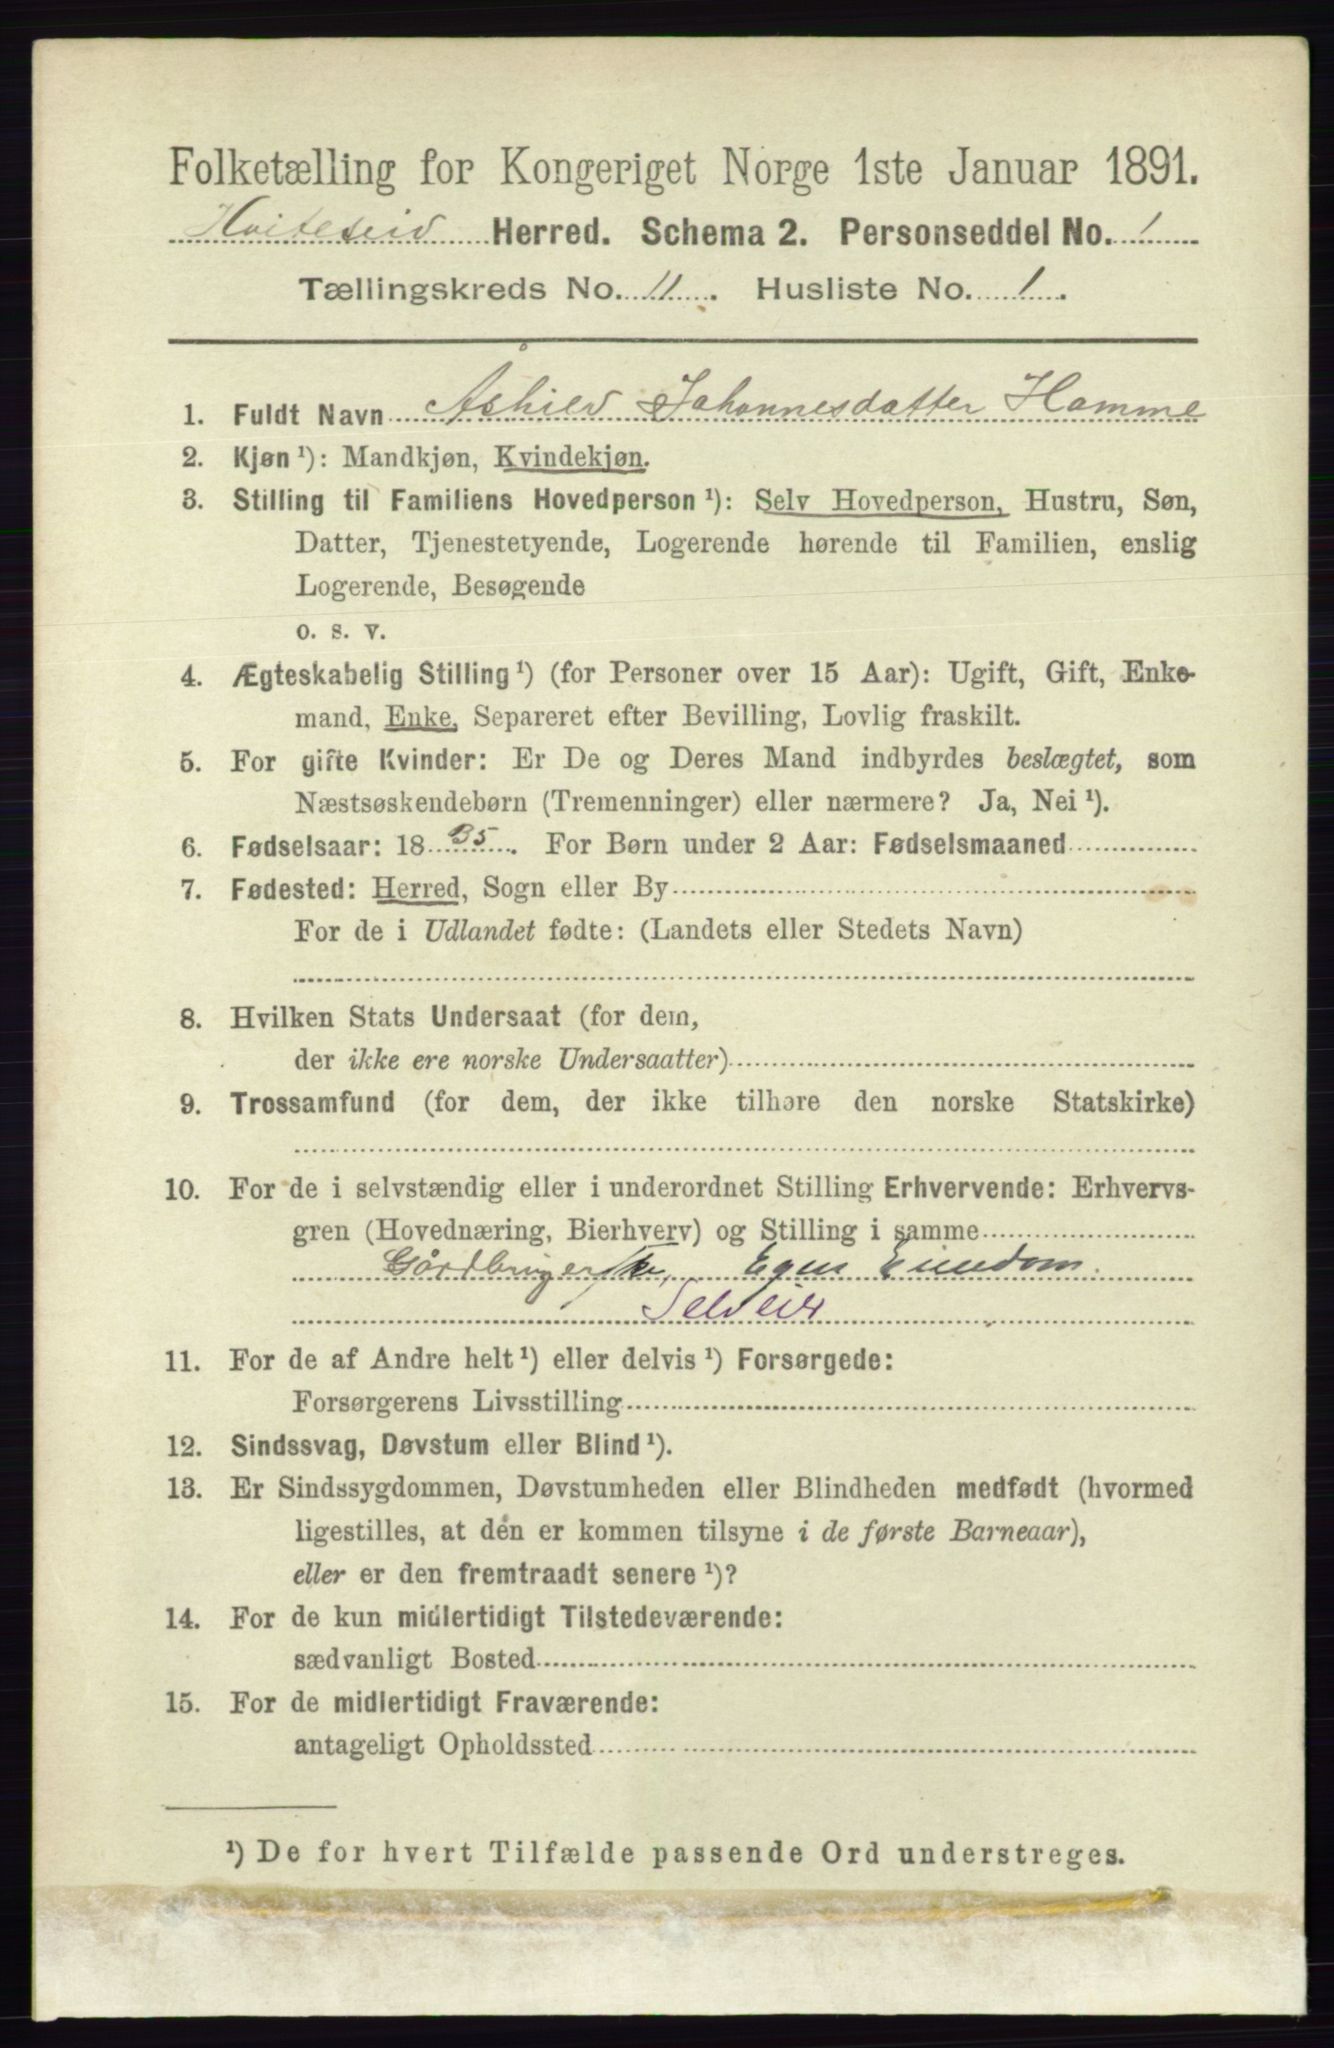 Folketælling for Kongeriget Norge 1ste Januar 1891.
Hviteseid Herred. Schema 2. Personseddel No. 1
Tællingskreds No. 11. Husliste No. 1.
1. Fuldt Navn Åshild Johannesdatter Homme
2. Kjøn ¹): Mandkjøn, Kvindekjøn.
3. Stilling til Familiens Hovedperson ¹): Selv Hovedperson, Hustru, Søn,
Datter, Tjenestetyende, Logerende hørende til Familien, enslig
Logerende, Besøgende
o. s. v.
4. Ægteskabelig Stilling ¹) (for Personer over 15 Aar): Ugift, Gift, Enke-
mand, Enke, Separeret efter Bevilling, Lovlig fraskilt.
5. For gifte Kvinder: Er De og Deres Mand indbyrdes beslægtet, som
Næstsøskendebørn (Tremenninger) eller nærmere? Ja, Nei ¹).
6. Fødselsaar: 1835. For Børn under 2 Aar: Fødselsmaaned
7. Fødested: Herred, Sogn eller By
For de i Udlandet fødte: (Landets eller Stedets Navn)
8. Hvilken Stats Undersaat (for dem,
der ikke ere norske Undersaatter)
9. Trossamfund (for dem, der ikke tilhøre den norske Statskirke)
10. For de i selvstændig eller i underordnet Stilling Erhvervende: Erhvervs-
gren (Hovednæring, Bierhverv) og Stilling i samme
Gårdbrugerske, Egen Eiendom.
Selveier
11. For de af Andre helt ¹) eller delvis ¹) Forsørgede:
Forsørgerens Livsstilling
12. Sindssvag, Døvstum eller Blind ¹).
13. Er Sindssygdommen, Døvstumheden eller Blindheden medfødt (hvormed
ligestilles, at den er kommen tilsyne i de første Barneaar),
eller er den fremtraadt senere ¹)?
14. For de kun midlertidigt Tilstedeværende:
sædvanligt Bosted
15. For de midlertidigt Fraværende:
antageligt Opholdssted
¹) De for hvert Tilfælde passende Ord understreges.